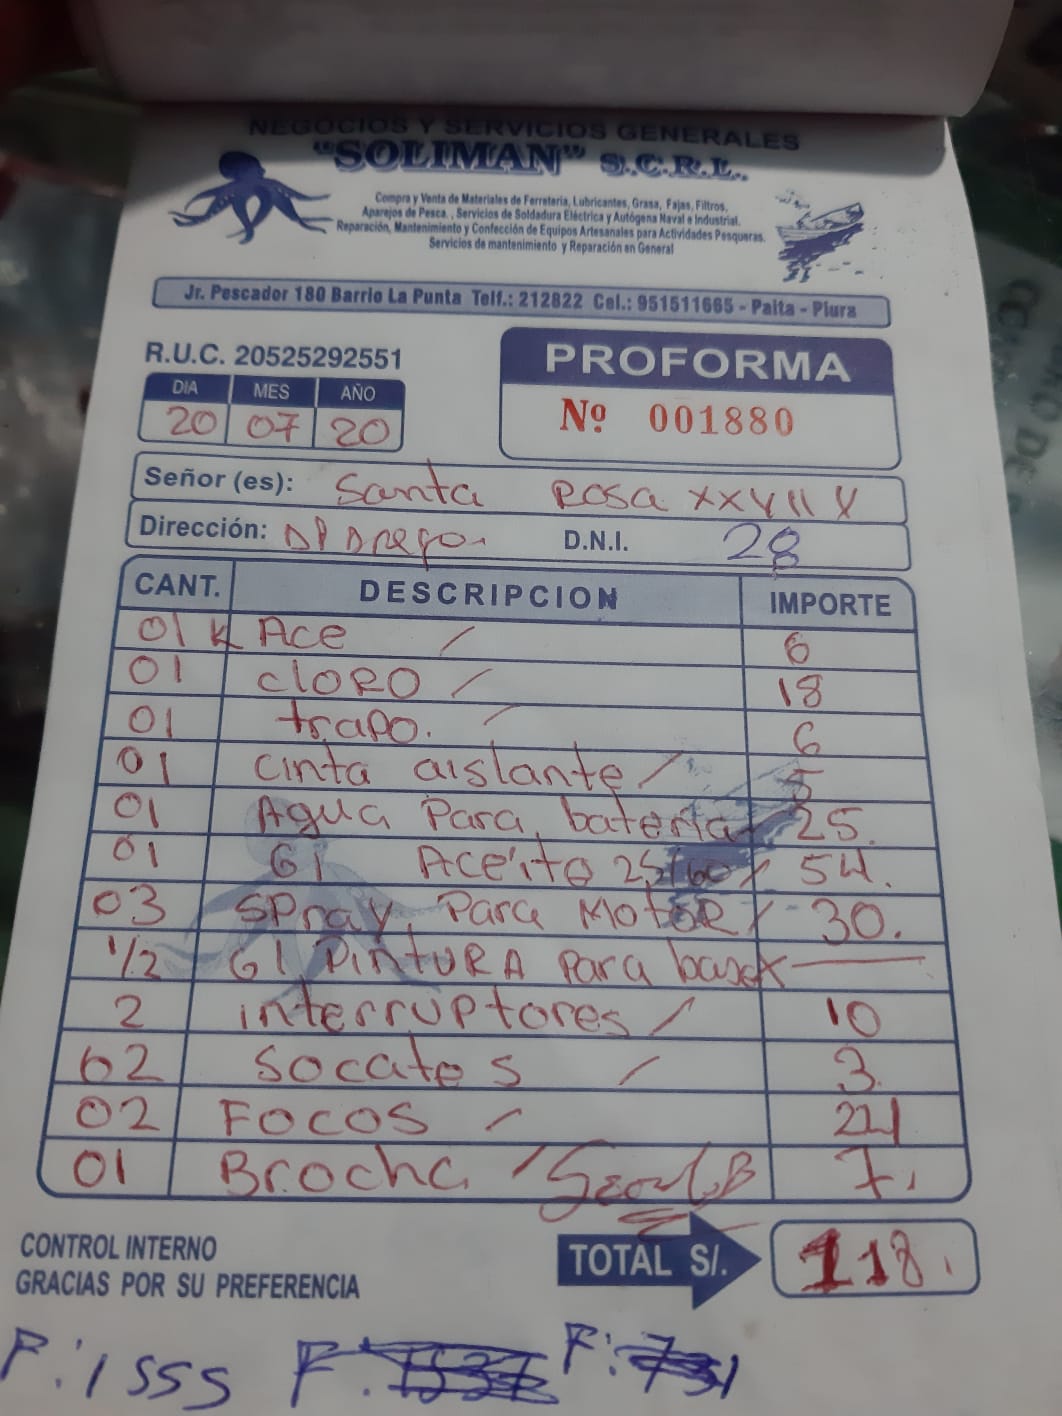 NEGOCIOS Y SERVICIOS GENERALES
"SOLIMAN" S.C.R.L.
Compra y Venta de Materiales de Ferretería, Lubricantes, Grasa, Fajas, Filtros,
Aparejos de Pesca., Servicios de Soldadura Eléctrica y Autógena Naval e Industrial.
Reparación, Mantenimiento y Confección de Equipos Artesanales para Actividades Pesqueras.
Servicios de mantenimiento y Reparación en General
Jr. Pescador 180 Barrio La Punta Telf.: 212822 Cel.: 951511665 - Paita - Piura
R.U.C. 20525292551
PROFORMA
DIA MES AÑO
Nº 001880
20 07 20
Señor (es): Santa Rosa
Dirección: D.N.I. 28
CANT. DESCRIPCION IMPORTE
01 K Ace / 6
01 cloro / 18
01 trapo. / 6
01 cinta aislante / 5
01 Agua Para bateria 25.
01 Gl Aceito 25/60 / 54.
03 SPray Para Motor / 30.
1/2 Gl PintURA Para base x
2 interruptores / 10
02 Socates / 3.
02 Focos /
01 Brocha / 7.
CONTROL INTERNO
GRACIAS POR SU PREFERENCIA
TOTAL S/. 118.
F: 1555 F. F: 731